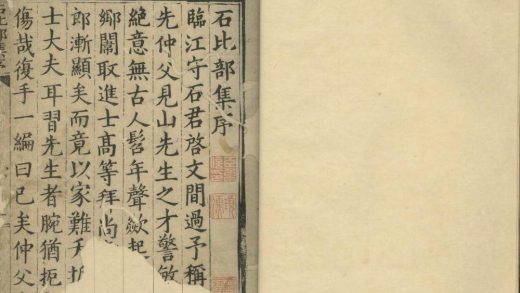 石比部集序
臨江守石君啓文間過予稱
先仲父見山先生之才警敏
絕意無古人髫年聲歘起
鄉闈取進士高等拜尚
郎漸顯矣而竟以家難
士大夫耳習先生者腕猶扼
傷哉復手一編曰已矣仲父